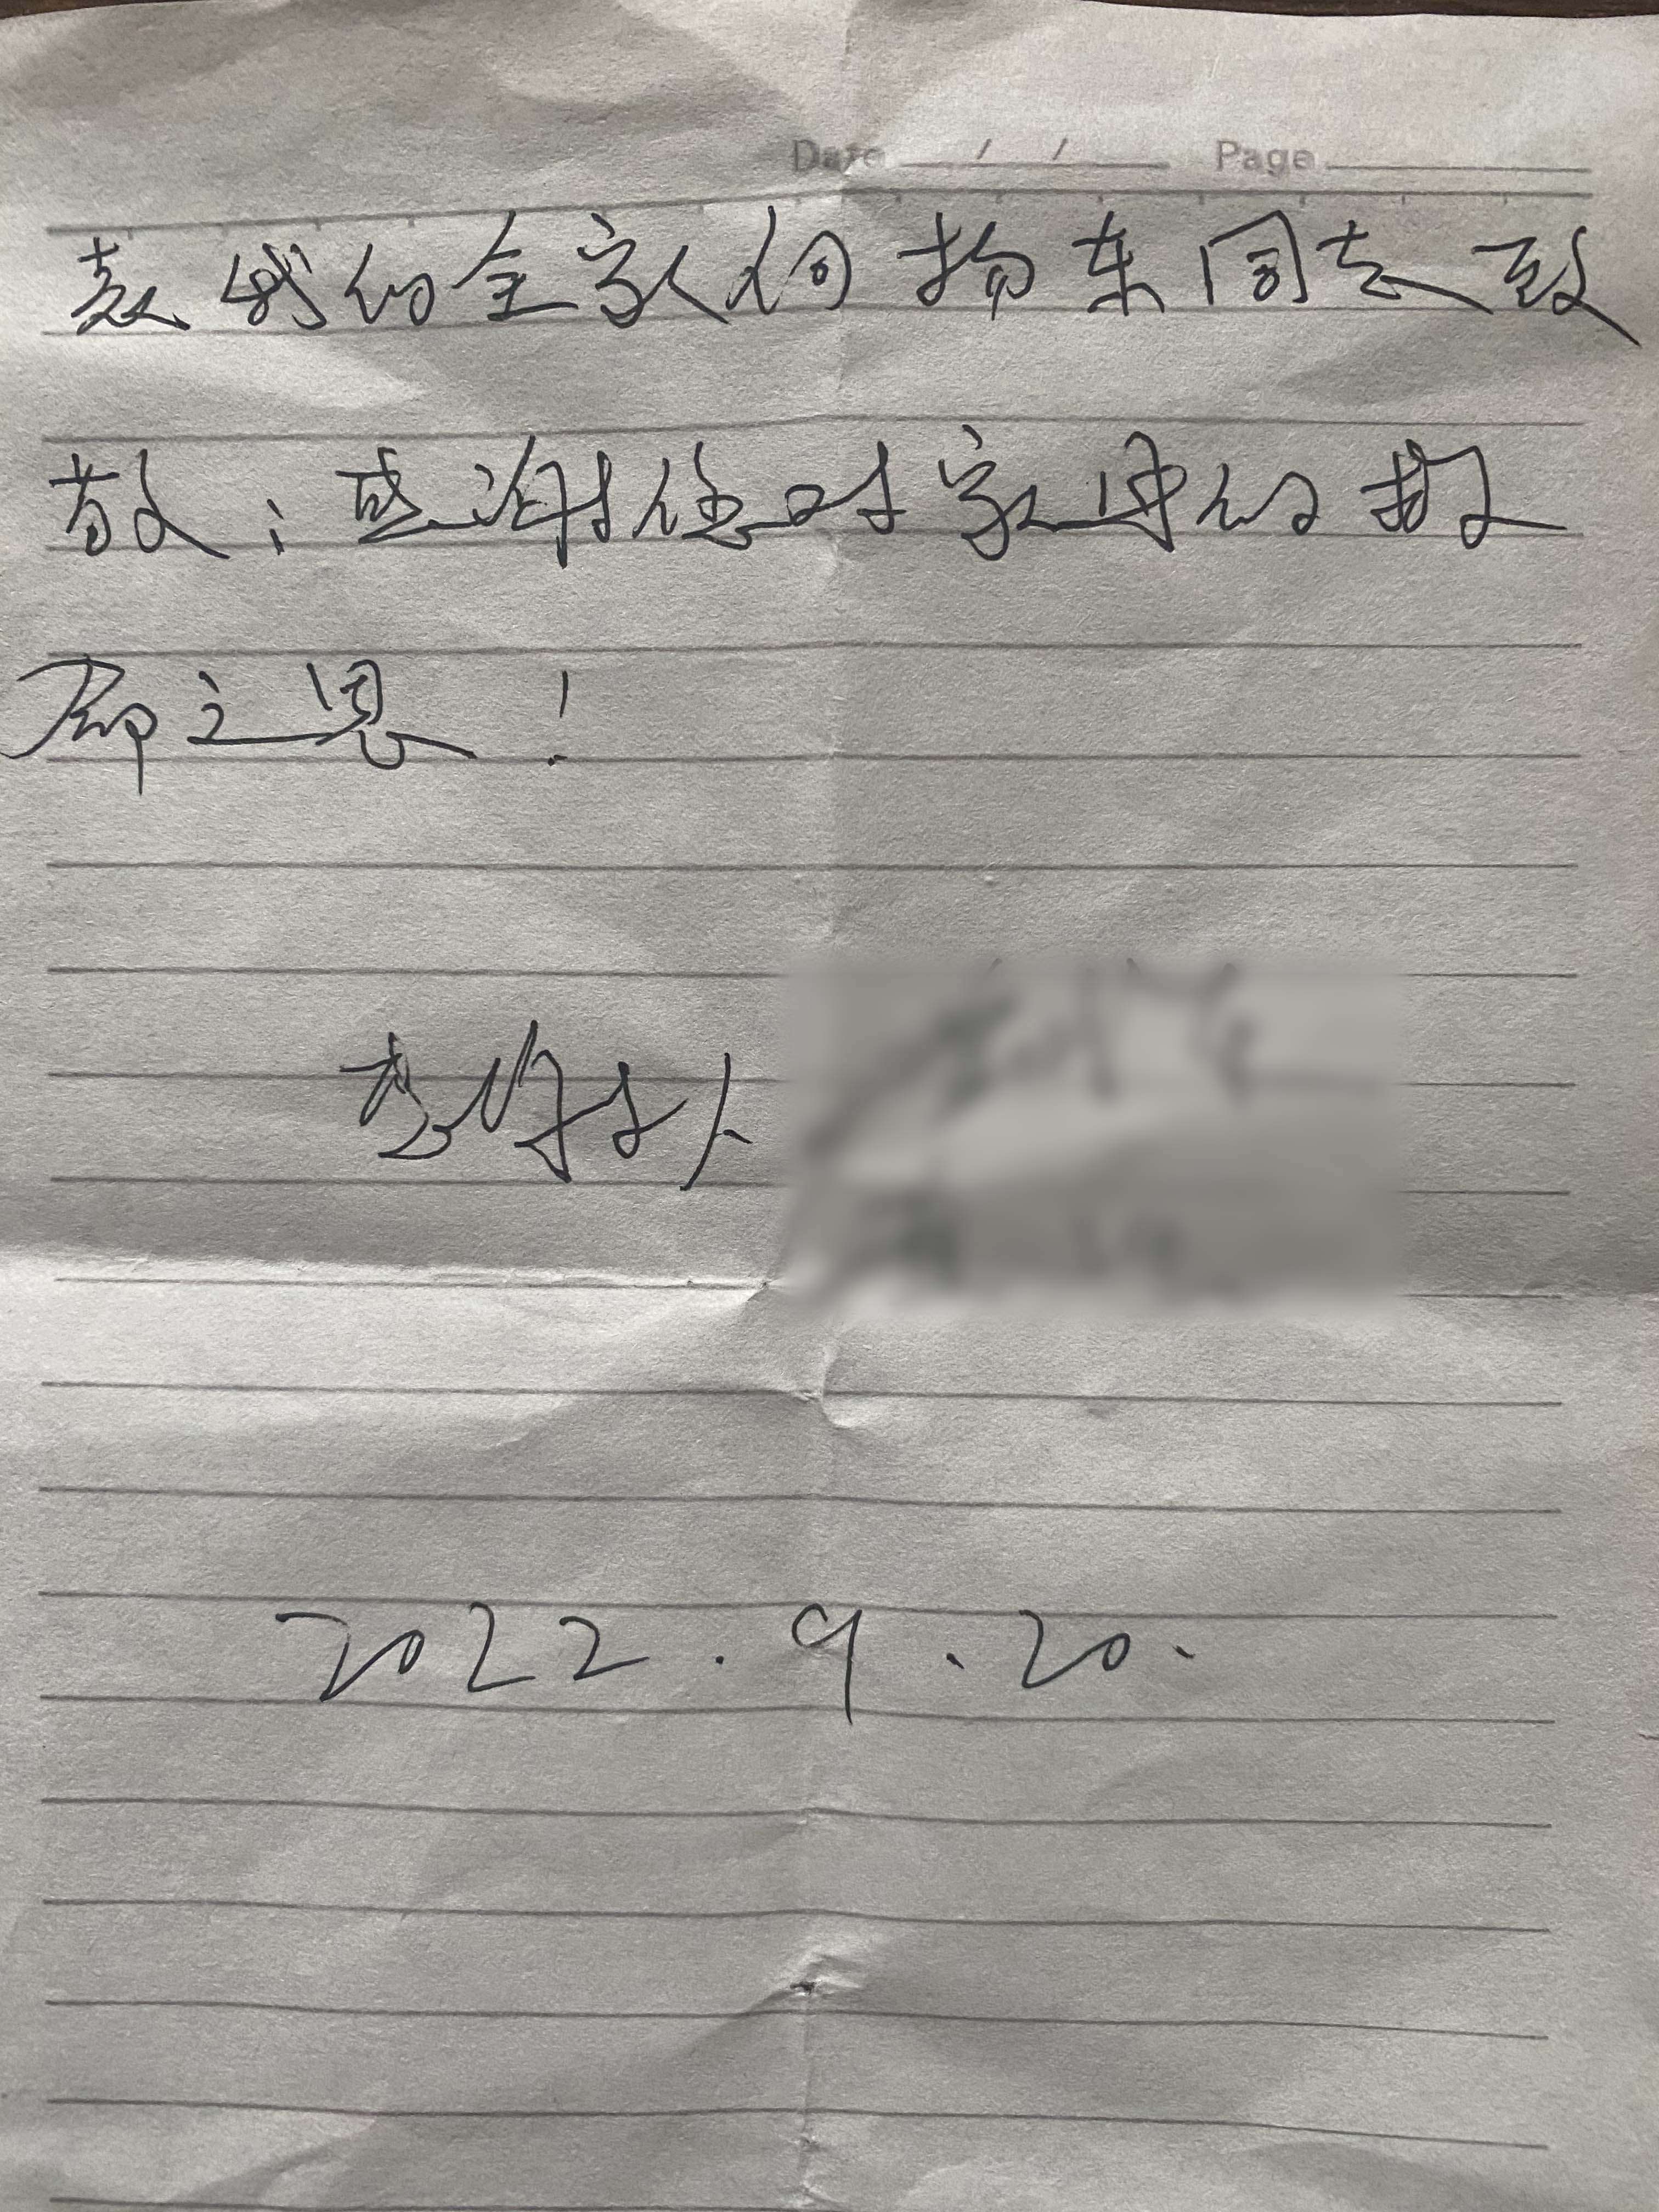 Date / / Page
我们全家人向扬东同志致
敬；感谢您对家母的救
命之恩！
2022.9.20.